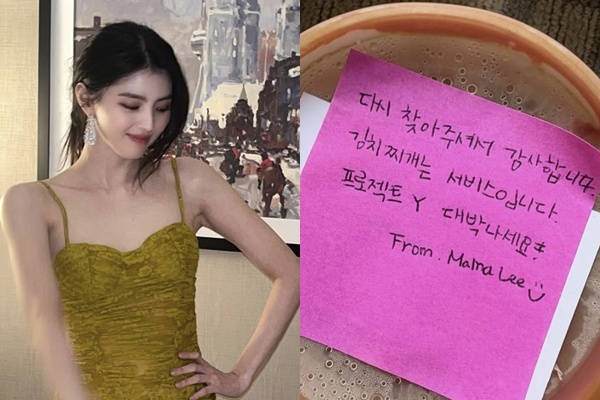 다시 찾아주셔서 감사합니다.
김치찌개는 서비스입니다.
프로젝트 Y 대박나세요!
From. Mama Lee